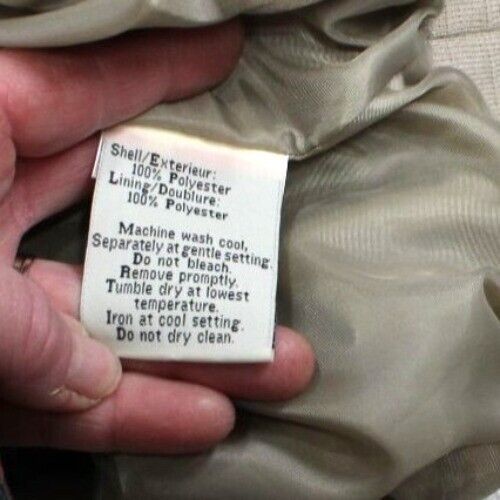 Shell/Exterieur:
100% Polyester
Lining/Doublure:
100% Polyester
Machine wash cool,
Separately at gentle setting.
Do not bleach.
Remove promptly.
Tumble dry at lowest
temperature.
Iron at cool setting.
Do not dry clean.